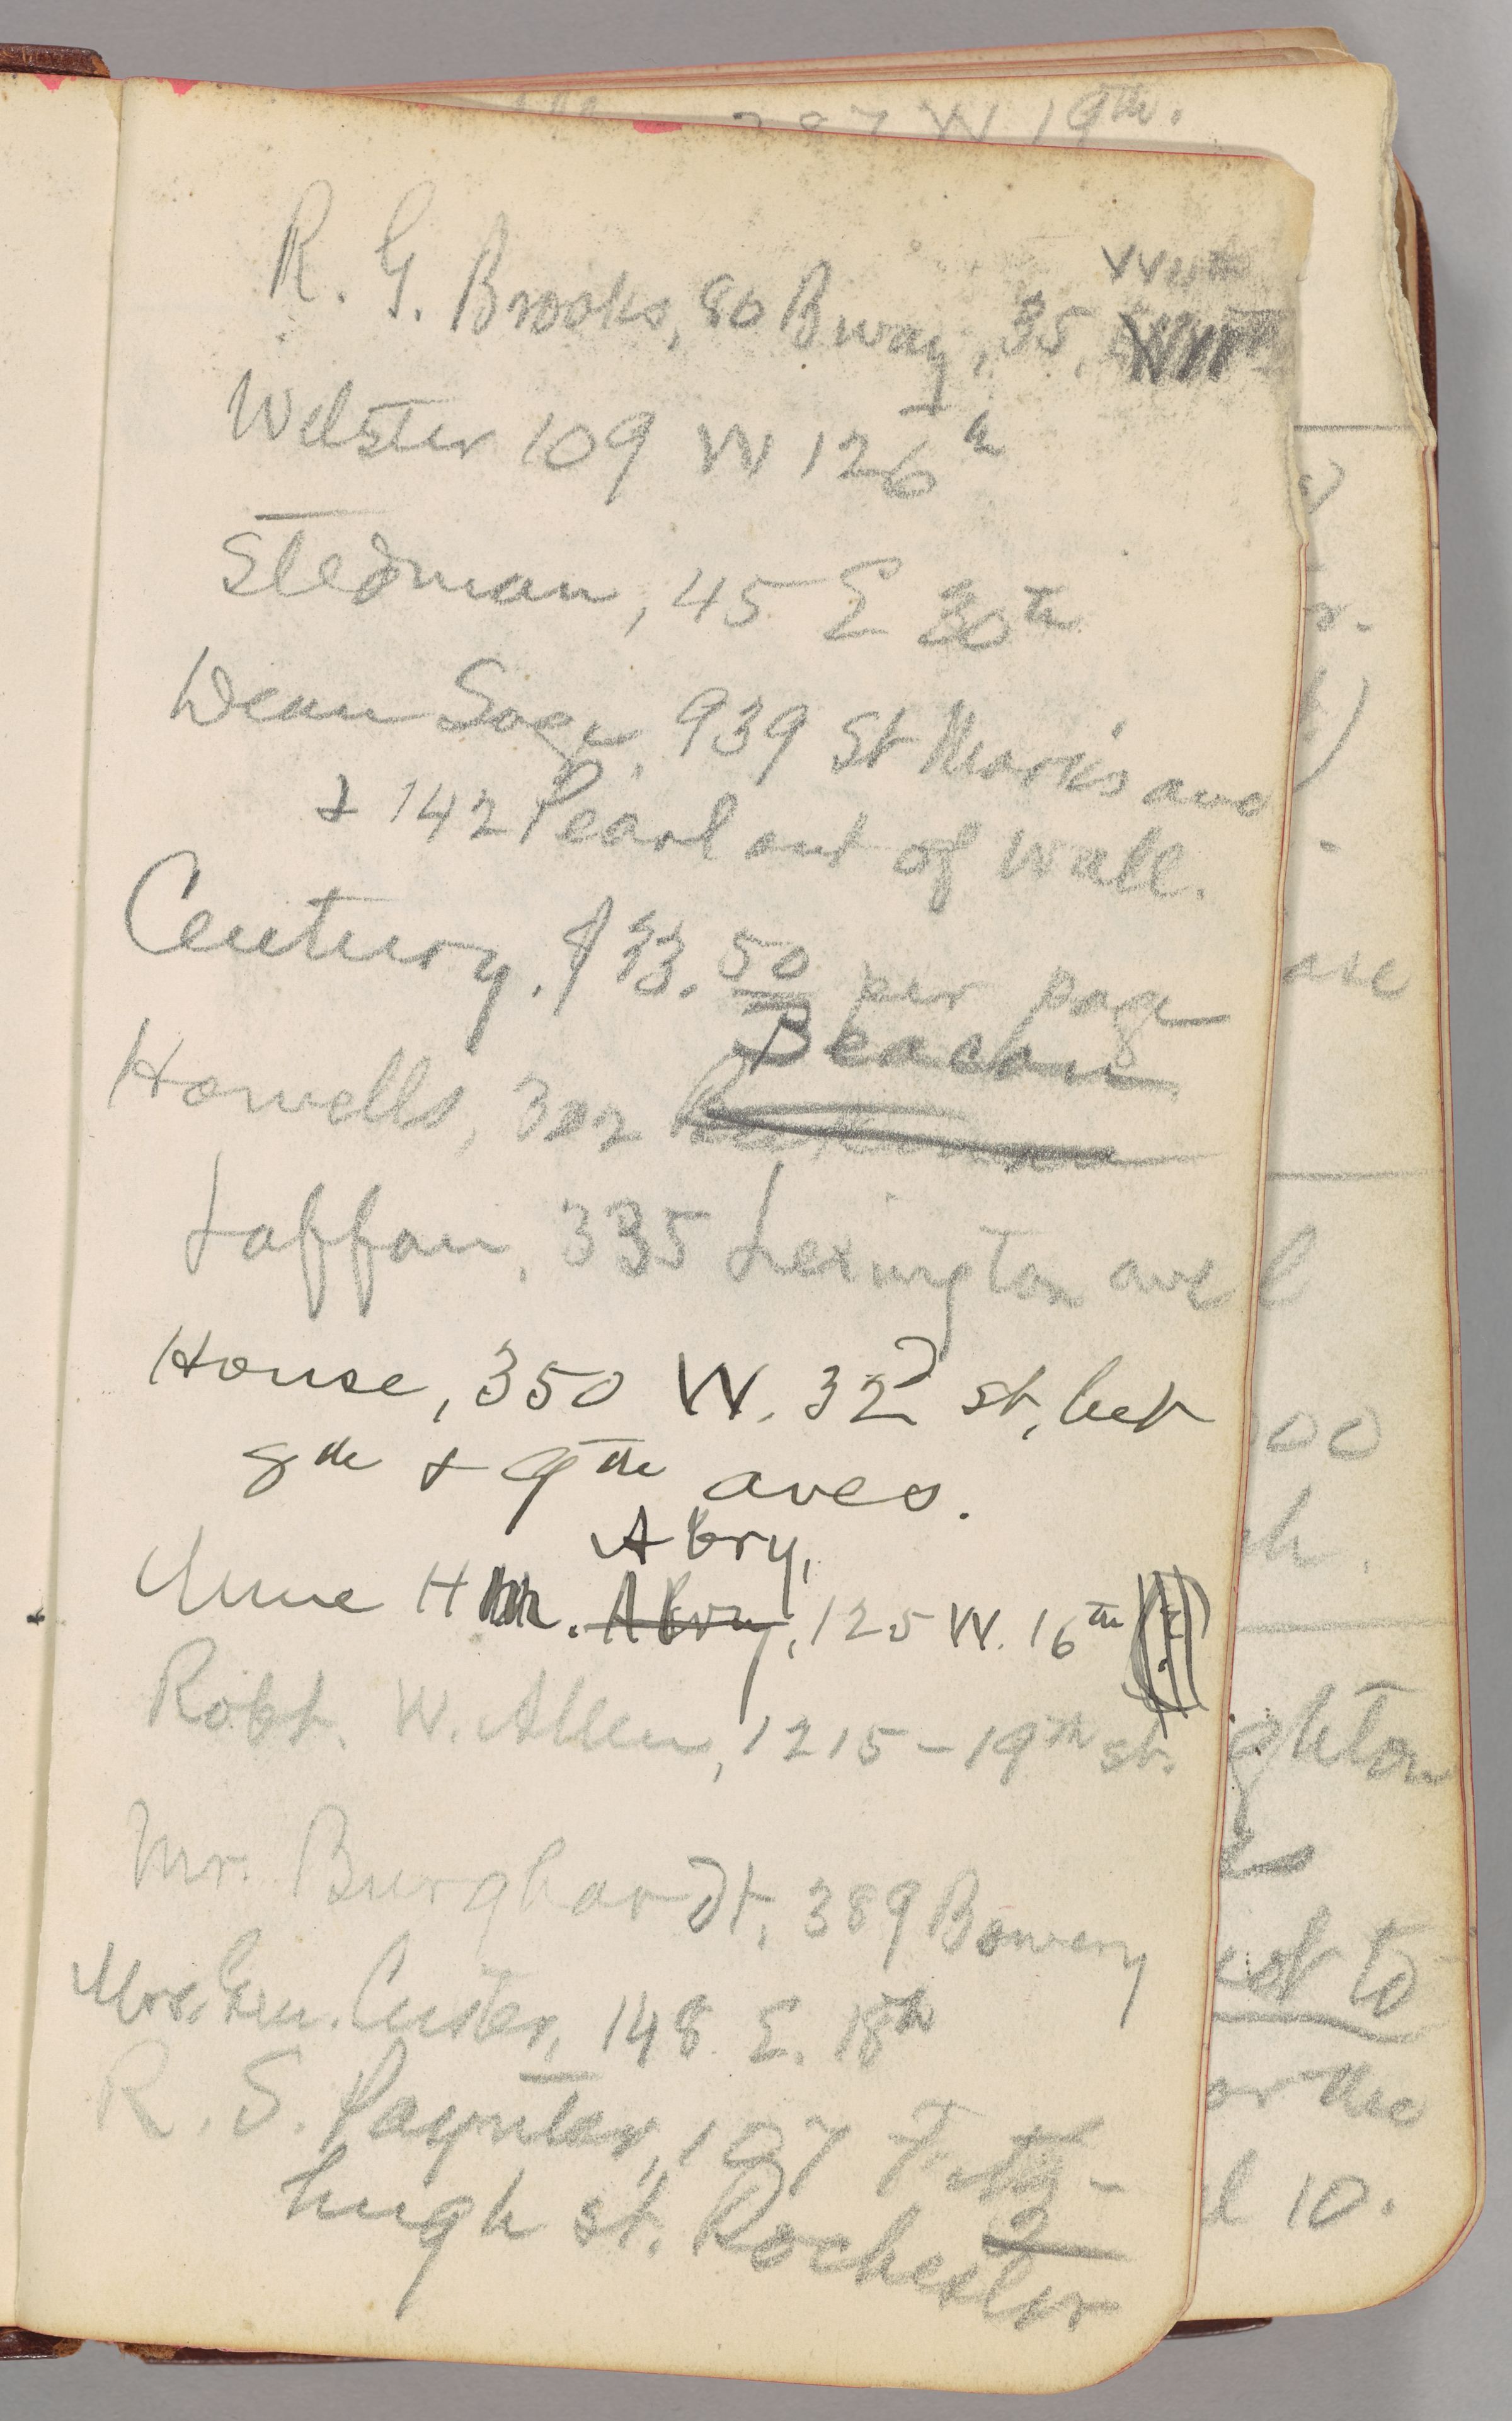 297 W 19th.
R. G. Brooks, 80 Bway, 35,
Webster 109 W 126th
Stedman, 45 E 30th
Dean Sage, 939 St Marks ave
& 142 Pearl out of Wall.
Century. $33.50 per page
Beacon
Howells, 302
Laffan, 335 Lexington ave
House, 350 W. 32d st, bet
8th & 9th aves.
Abry,
Mme H . Abry, 125 W. 16th
Robt. W. Allen, 1215-19th st.
Mr. Burghardt, 389 Bowery
Mrs. Gen. Custer, 148 E. 18th
R. S. Paynter, 107 Fitz-
hugh st. Rochester
00
th.
ghton
to
or the
10.